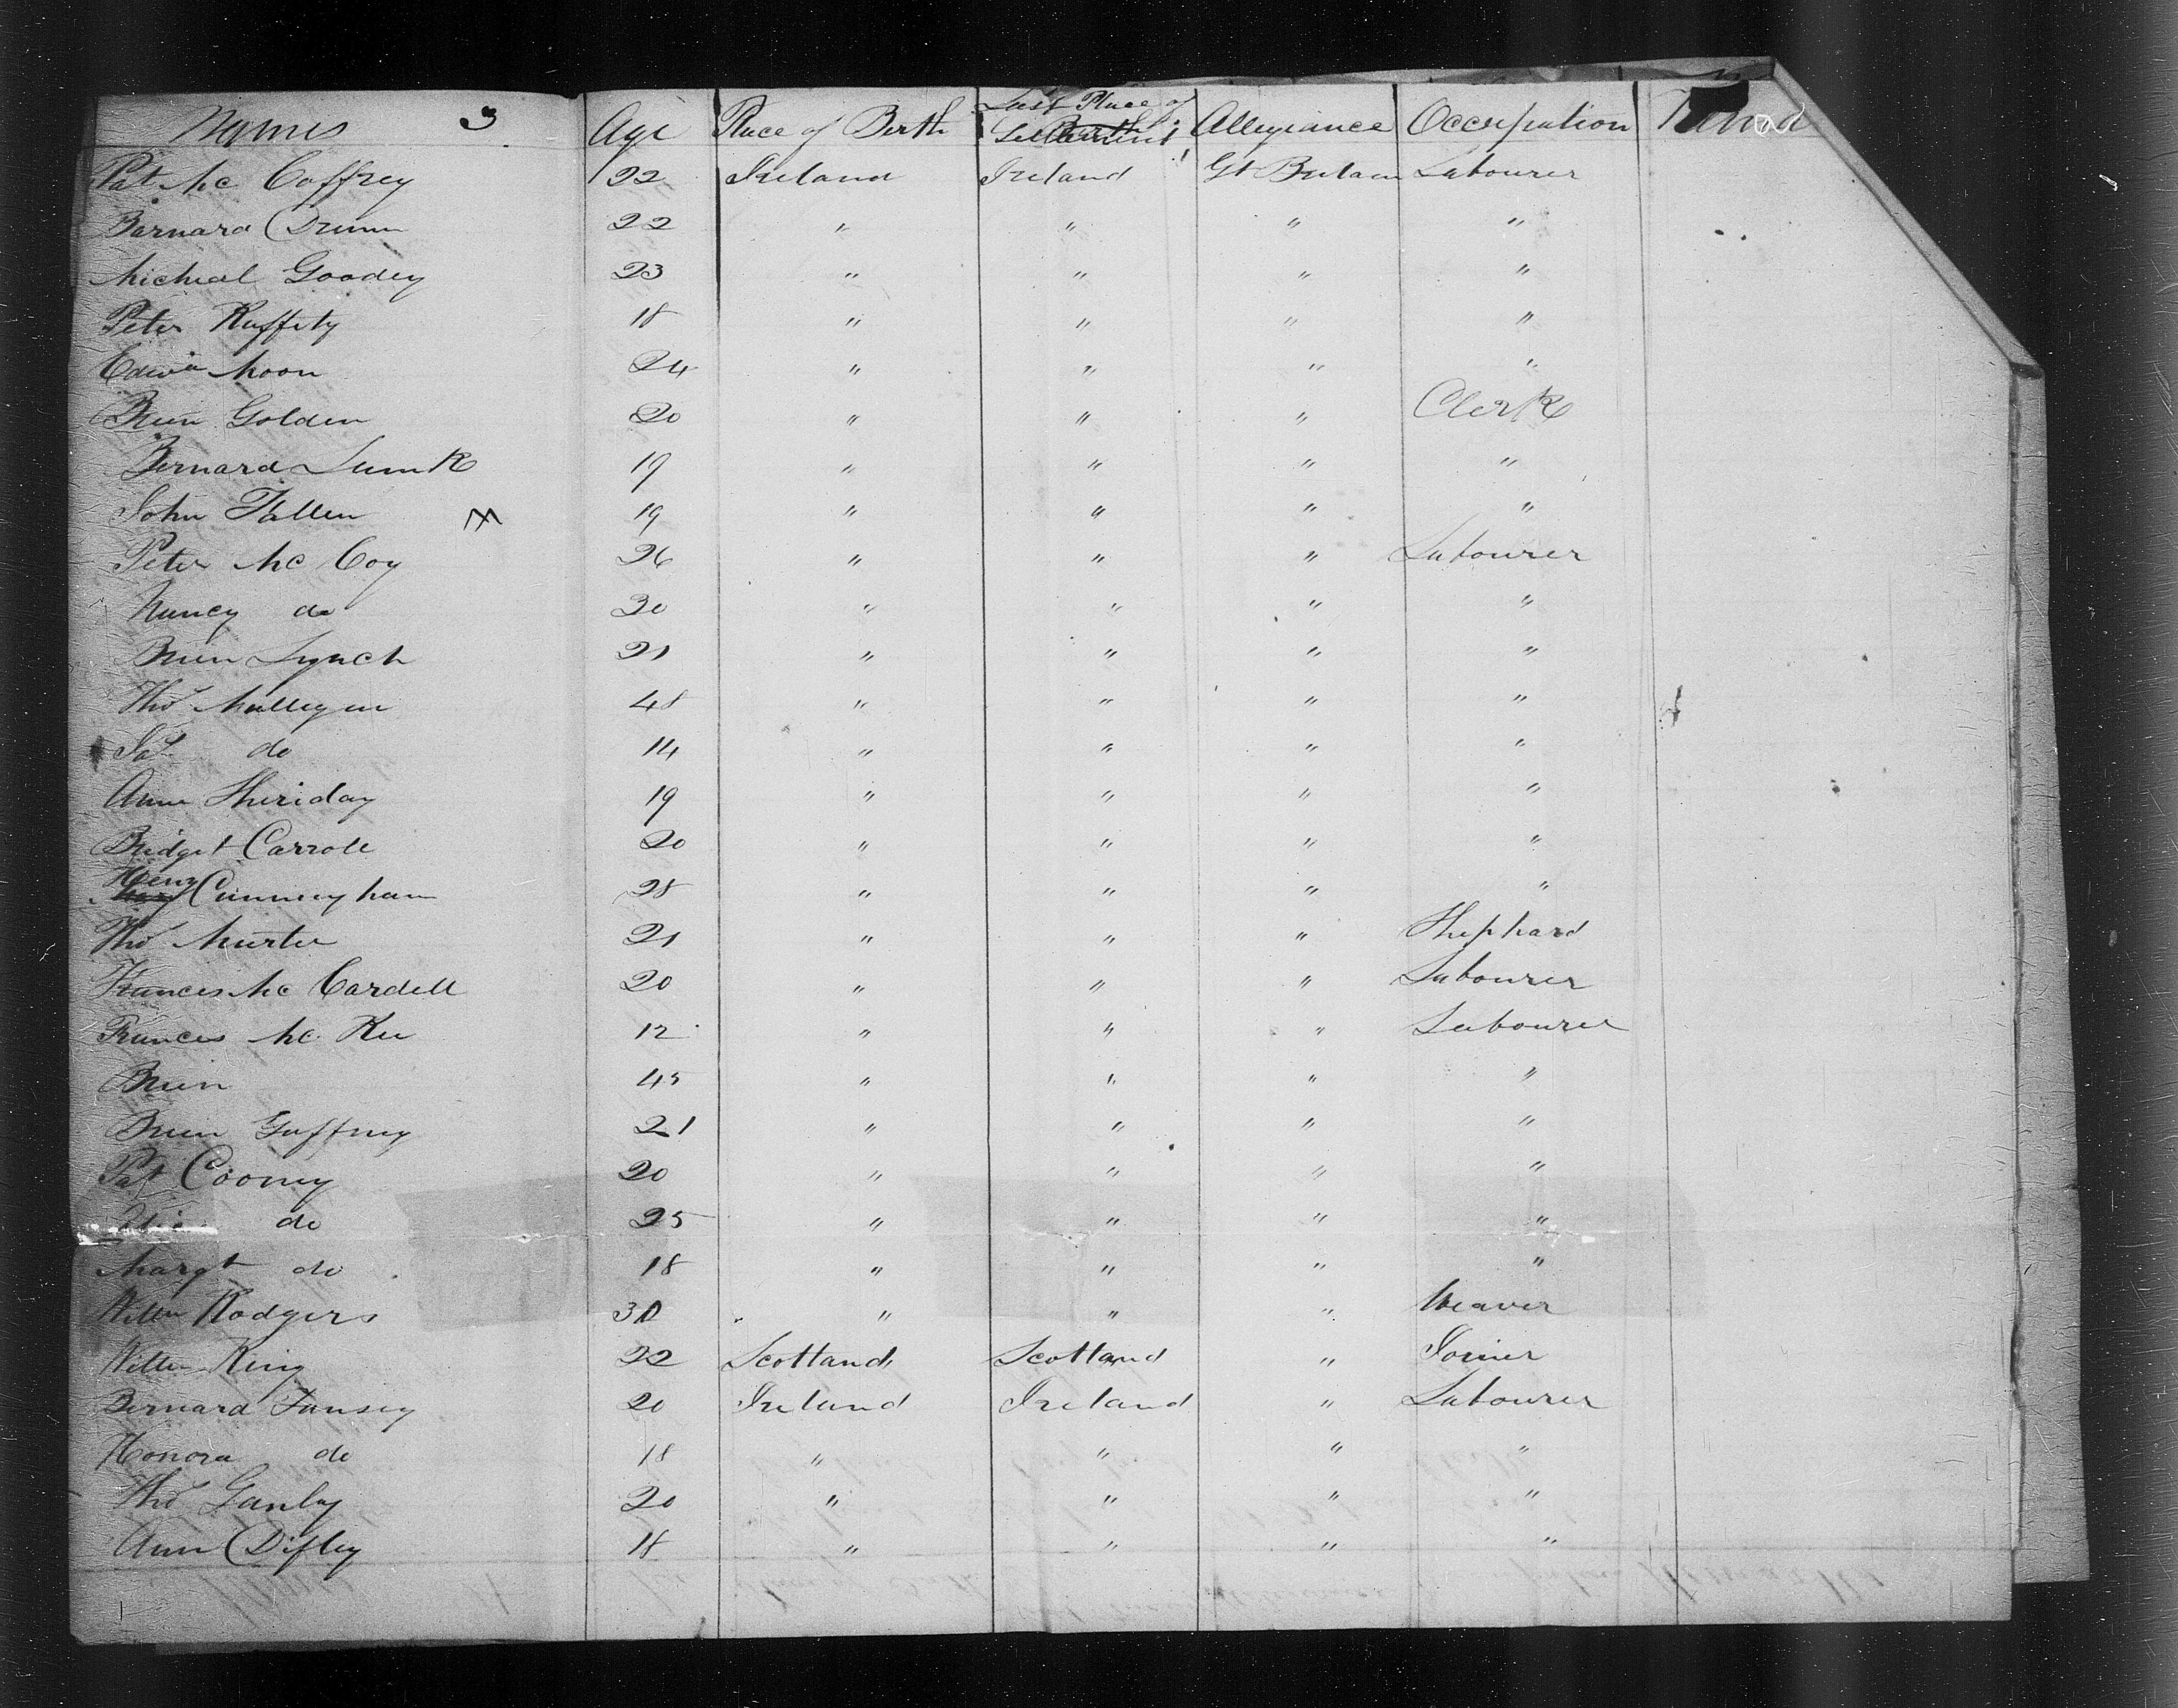 Names 3 Age Place of Birth Last Place of Settlement Allegiance Occupation
Pat Mc Caffrey 22 Ireland Ireland Gt Britain Labourer
Bernard Drum 22 " " " "
Micheal Goodey 23 " " " "
Peter Raffity 18 " " " "
Edwd Moon 24 " " " "
Brien Golden 20 " " " Clerk
Bernard Lunk 19 " " " "
John Fallen 19 " " " "
Peter Mc Coy 26 " " " Labourer
Nancy do 30 " " " "
Brien Lynch 21 " " " "
Thos Mulligan 48 " " " "
Jas do 14 " " " "
Ann Sheriday 19 " " " "
Bridget Carroll 20 " " " "
Henry Cunningham 28 " " " "
Thos Murter 21 " " " Shephard
Frances Mc Cardell 20 " " " Labourer
Frances Mc Kee 12 " " " Labourer
Brien 45 " " " "
Brien Gaffney 21 " " " "
Pat Cooney 20 " " " "
do 25 " " " "
Margt do 18 " " " "
Willm Rodgers 30 " " " Weaver
Willm King 22 Scotland Scotland " Joiner
Bernard Fansey 20 Ireland Ireland " Labourer
Honora do 18 " " " "
Thos Ganly 20 " " " "
Ann Difley 18 " " " "